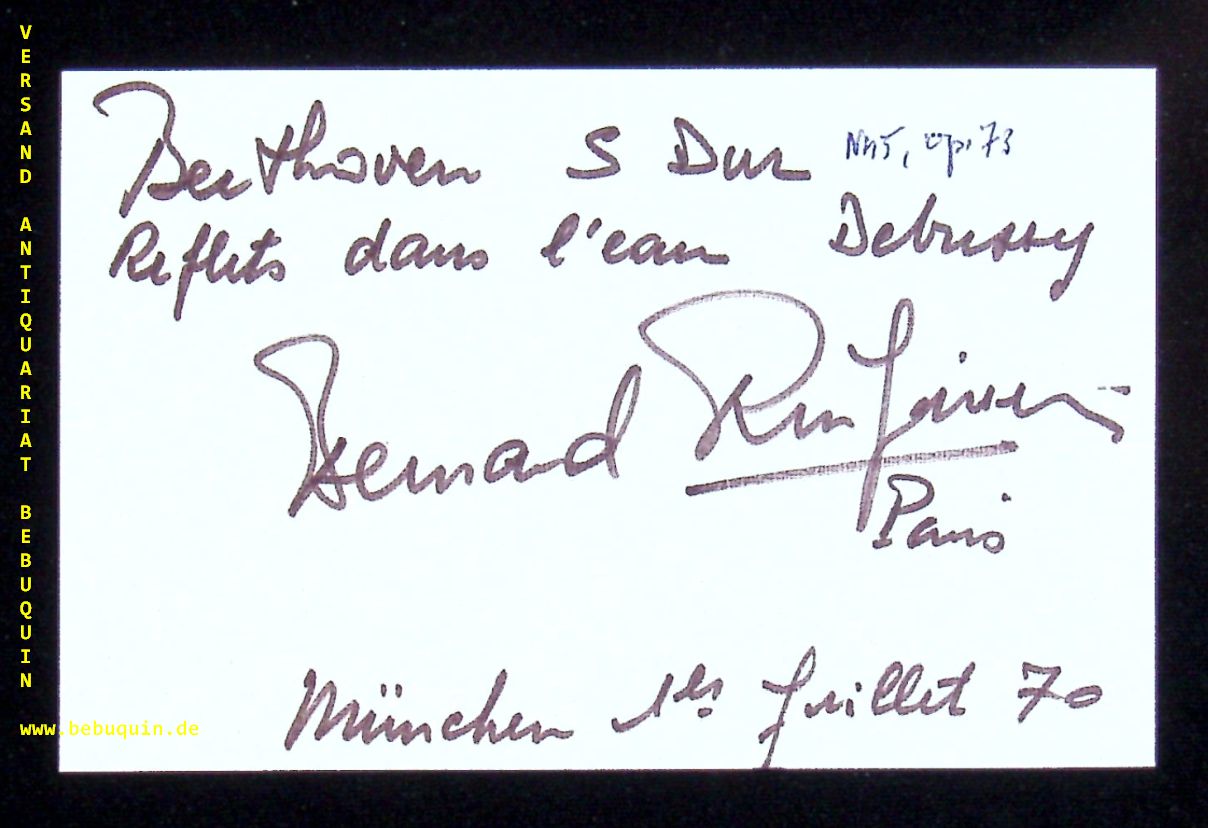 VERSAND ANTIQUARIAT BEBUQUIN
Beethoven S Dur Nr.5, op. 73
Reflets dans l'eau Debussy
Bernard Ringeissen
Paris
München 1er Juillet 70
www.bebuquin.de